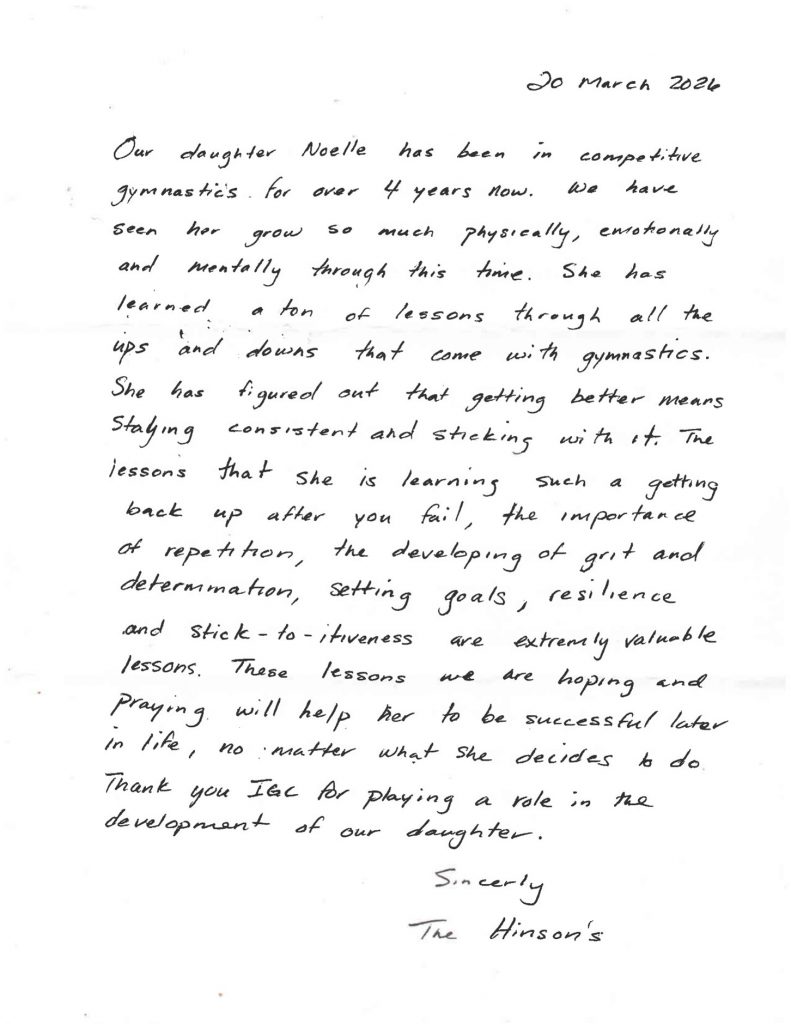 20 March 2026
Our daughter Noelle has been in competitive
gymnastics for over 4 years now. We have
seen her grow so much physically, emotionally
and mentally through this time. She has
learned a ton of lessons through all the
ups and downs that come with gymnastics.
She has figured out that getting better means
Staying consistent and sticking with it. The
lessons that she is learning such a getting
back up after you fail, the importance
of repetition, the developing of grit and
determination, setting goals, resilience
and stick-to-itiveness are extremly valuable
lessons. These lessons we are hoping and
praying will help her to be successful later
in life, no matter what she decides to do.
Thank you IGC for playing a role in the
development of our daughter.
Sincerly
The Hinson's